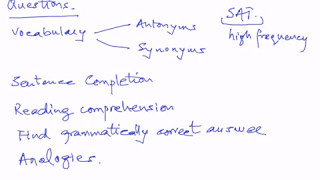 Questions.
Vocabulary
Antonyms
Synonyms
SAT.
high frequency
Sentence Completion
Reading comprehension
Find grammatically correct answer
Analogies.